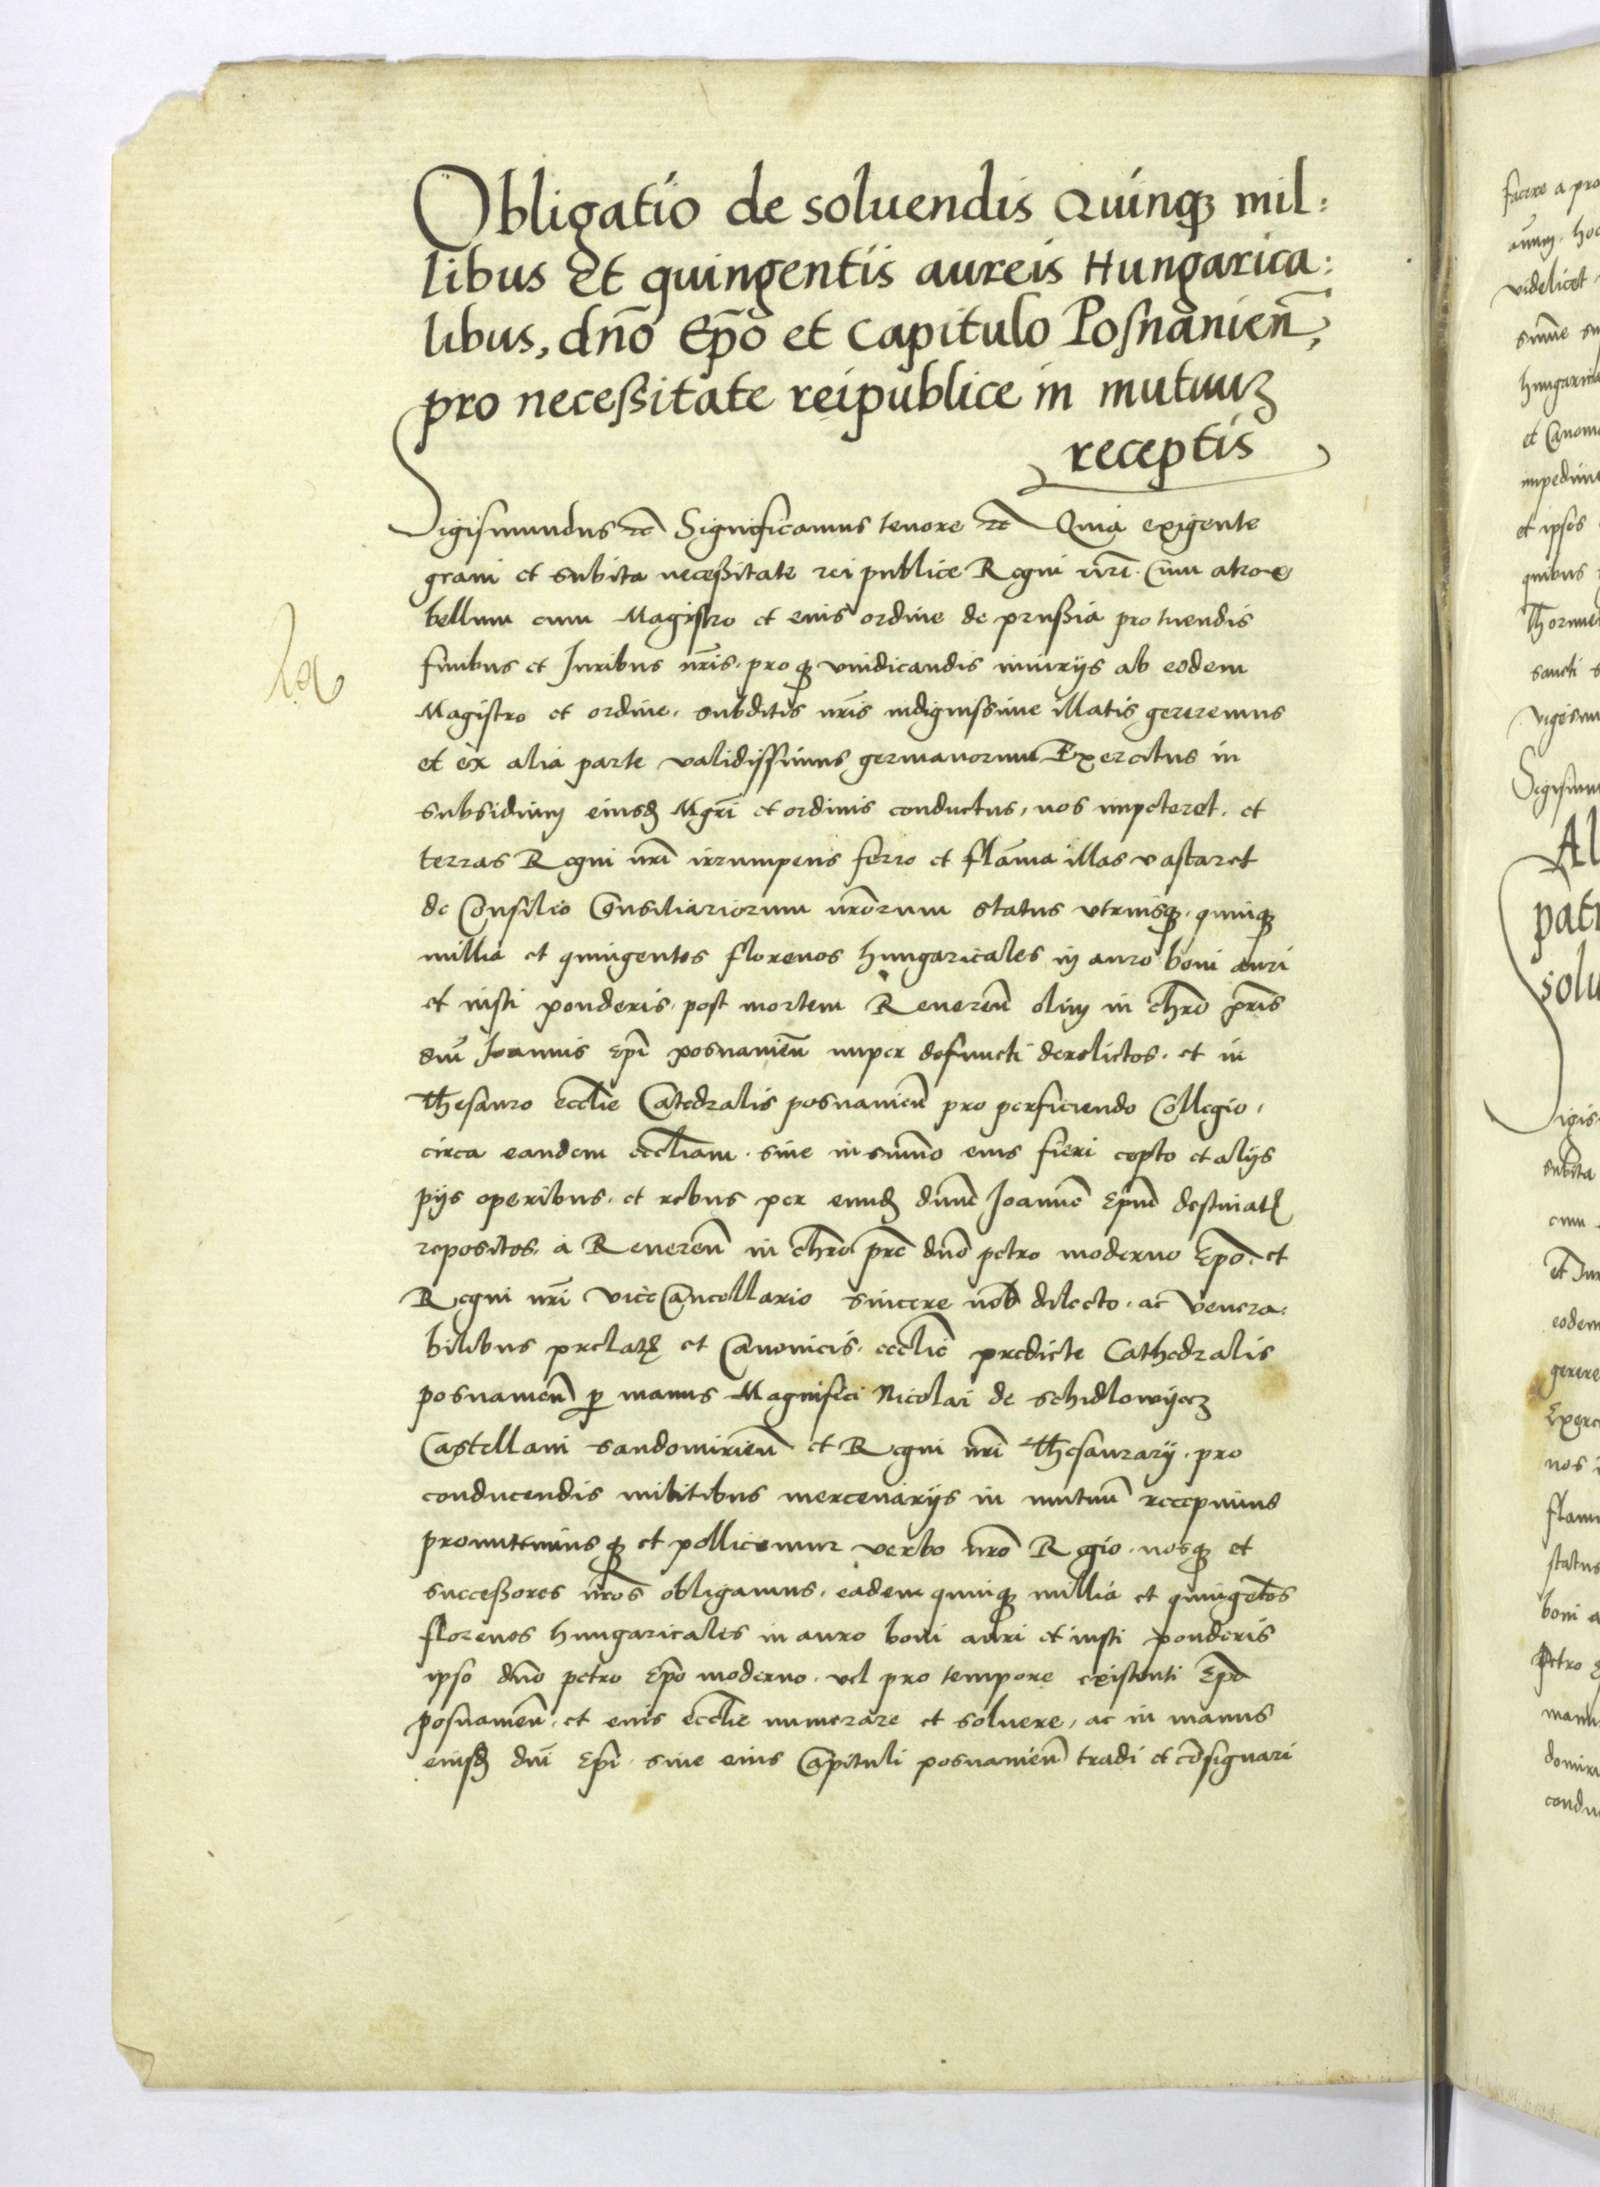 Obligatio de soluendis Quinqꝫ mil:
libus Et quingentis aureis Hungarica:
libus, dn̄o Ep̄o et Capitulo Posnanien̄,
pro necessitate reipublice in mutuuꝫ
receptis
Sigismundus ⁊c̄ Significamus tenore ⁊c̄ Quia exigente
graui et subita necessitate rei publice Regni nr̄i. Cum atroce
bellum cum Magistro et eius ordine de prussia pro tuendis
finibus et Juribus nr̄is. pro qꝫ vindicandis iniurijs ab eodem
Magistro et ordine. subditis nr̄is indignissime illatis gereremus
et ex alia parte validissimus germanorum Exercitus in
subsidium eiusdꝫ Mgr̄i et ordinis conductus, nos impeteret. et
terras Regni nr̄i irrumpens ferro et flāma illas vastaret
de Consilio Consiliariorum nr̄orum status vtriusqꝫ. quinqꝫ
millia et quingentos florenos hungaricales in auro boni auri
et iusti ponderis. post mortem Reueren̄ olim in chr̄o pr̄is
dn̄i Joannis Ep̄i posnanien̄ nuper defuncti derelictos. et in
Thesauro eccl̄ie Catedralis posnanien̄ pro perficiendo Collegio,
circa eandem eccl̄iam. siue in summo eius fieri cepto et alijs
pijs operibus. et rebus per eundꝫ dn̄um Joannē Ep̄um destinatꝭ
repositos. a Reueren̄ in chr̄o pr̄e dn̄o petro moderno Ep̄o. et
Regni nr̄i vice Cancellario sincere nob̄ dilecto. ac venera:
bilibus prelatꝭ et Canonicis. eccl̄ie predicte Cathedralis
posnanien̄ ꝑ manus Magnifici Nicolai de schidlowyecz
Castellani sandomirien̄ et Regni nr̄i Thesaurarij. pro
conducendis militibus mercenarijs in mutuū recepimus
promittimus qꝫ et pollicemur verbo nr̄o Regio. nosqꝫ et
successores nr̄os obligamus. eadem quinqꝫ millia et quingētos
florenos hungaricales in auro boni auri et iusti ponderis
ipso dn̄o petro Ep̄o moderno. vel pro tempore existenti Ep̄o
posnanien̄. et eius eccl̄ie numerare et soluere, ac in manus
eiusdꝫ dn̄i Ep̄i. siue eius Capituli posnanien̄ tradi et cōsignari